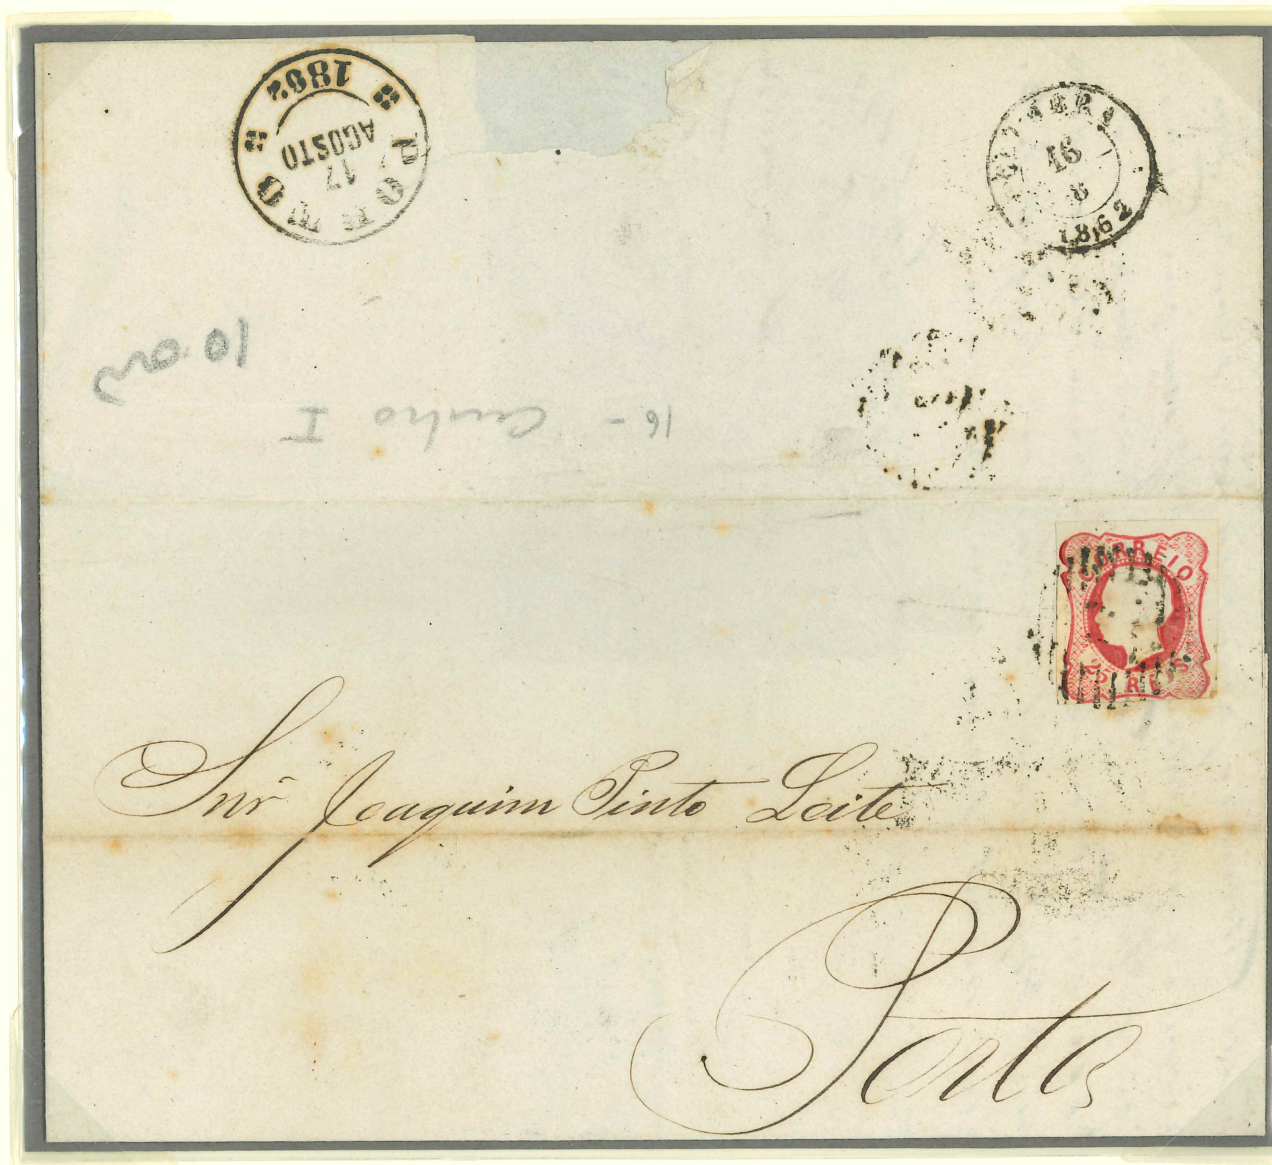 PORTO
17
AGOSTO
1862
16
8
1862
10
16 - Cunho I
CORREIO
25 REIS
Snr Joaquim Pinto Leite
Porto